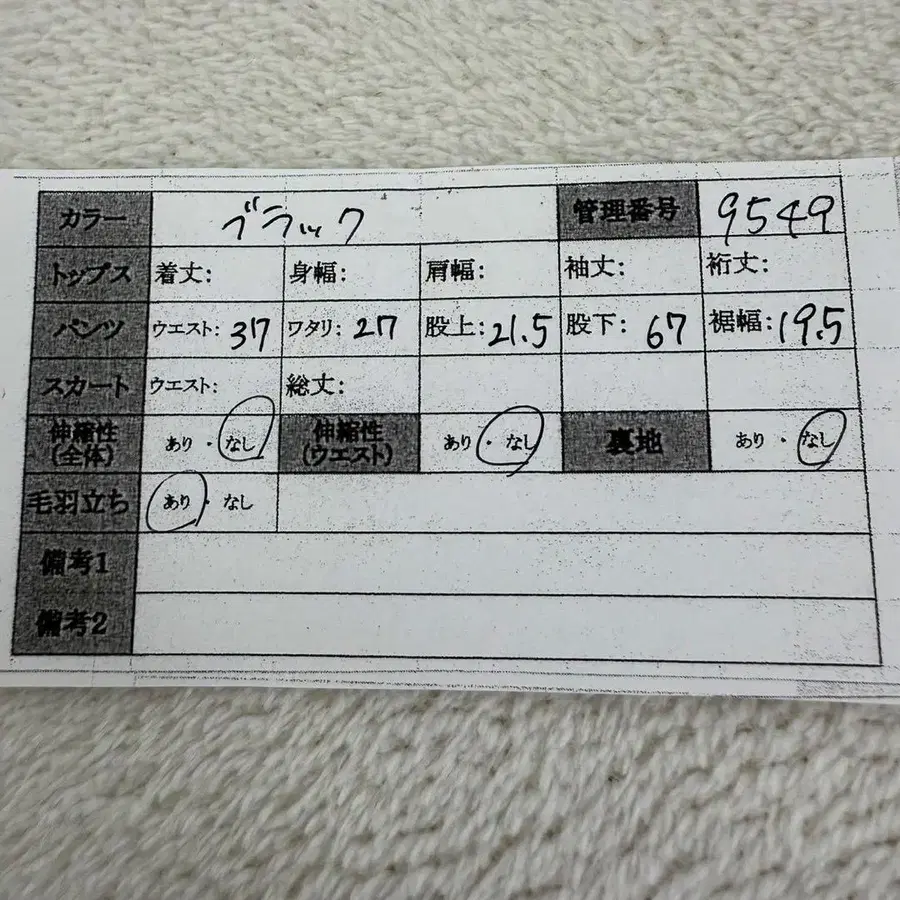 カラー ブラック 管理番号 9549
トップス 着丈: 身幅: 肩幅: 袖丈: 裄丈:
パンツ ウエスト: 37 ワタリ: 27 股上: 21.5 股下: 67 裾幅: 19.5
スカート ウエスト: 総丈:
伸縮性(全体) あり・なし 伸縮性(ウエスト) あり・なし 裏地 あり・なし
毛羽立ち あり・なし
備考1
備考2